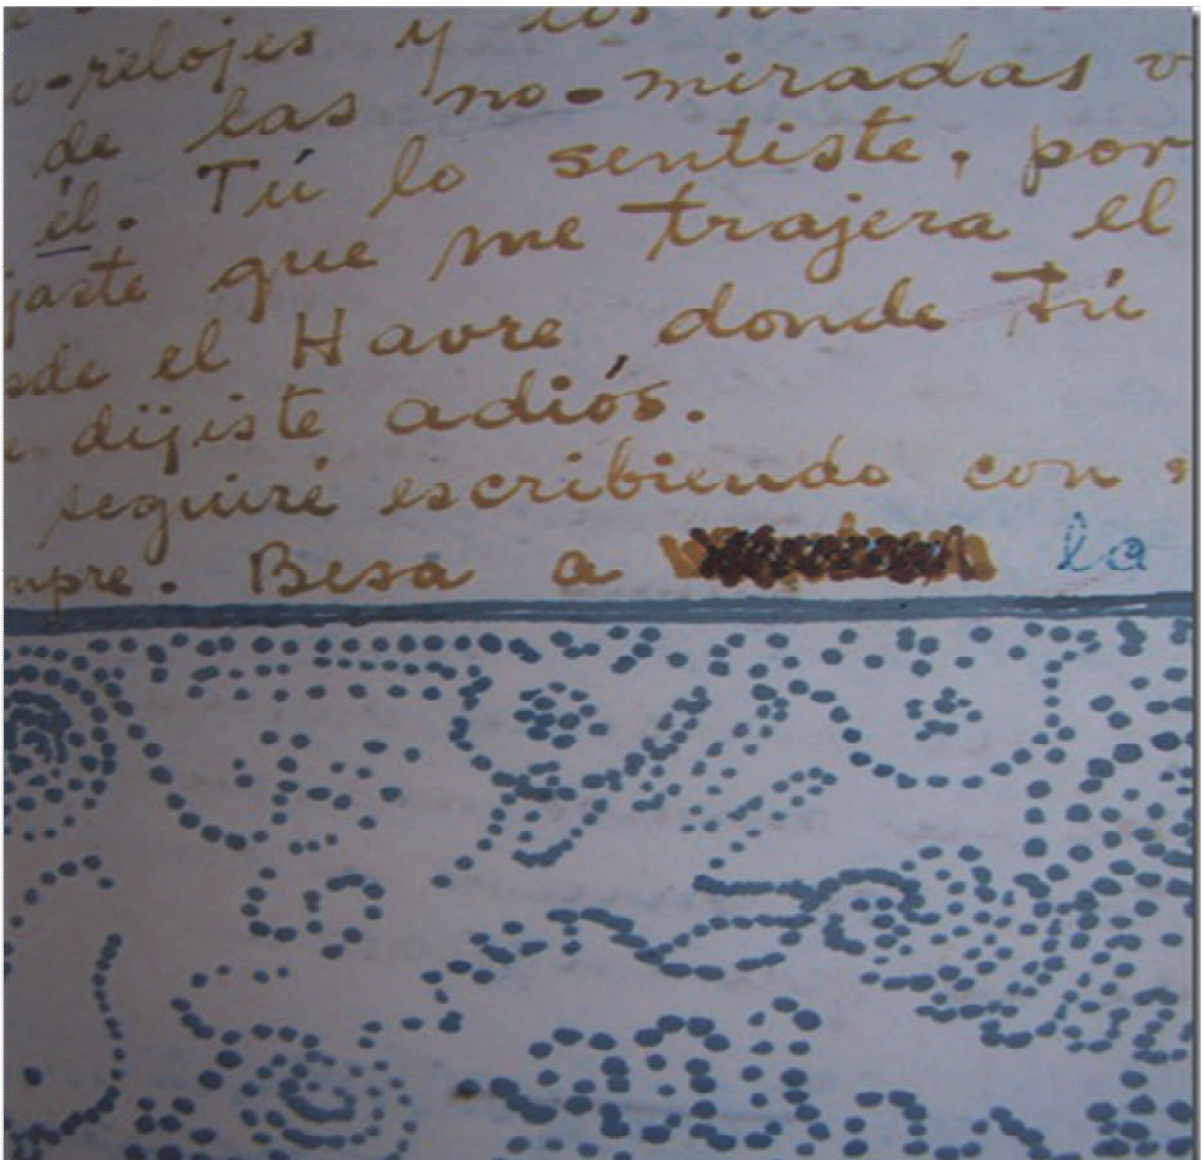 o-relojes y los
de las no-miradas v
él. Tú lo sentiste, por
jaste que me trajera el
sde el Havre, donde tú
e dijiste adiós.
seguiré escribiendo con
mpre. Besa a la